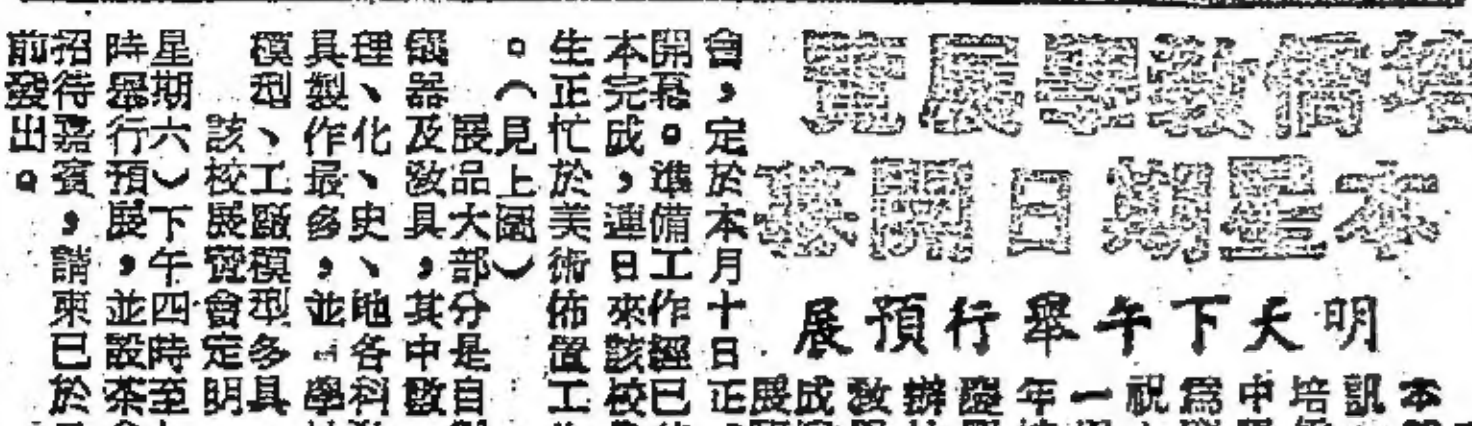 培僑教學展覽
本星期日開幕
明天下午舉行預展
本
訊
培
中
爲
祝
一
年
慶
辦
教
成
展
會，定於本月十日正
開幕。準備工作經已
本完成，連日來該校
生正忙於美術佈置工
。（見上圖）
展品大部分是自
儀器及敎具，其中數
理、化、史、地各科
具製作最多，並 學
模型、工廠模型多具
該校展覽會定明
星期六）下午四時至
時舉行預展，並設茶
招待嘉賓，請柬已於
前發出。